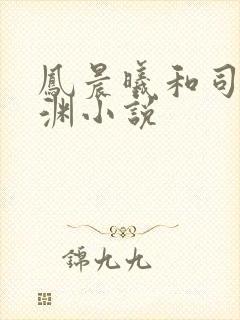 鳳晨曦和司
渊小説
錦九九